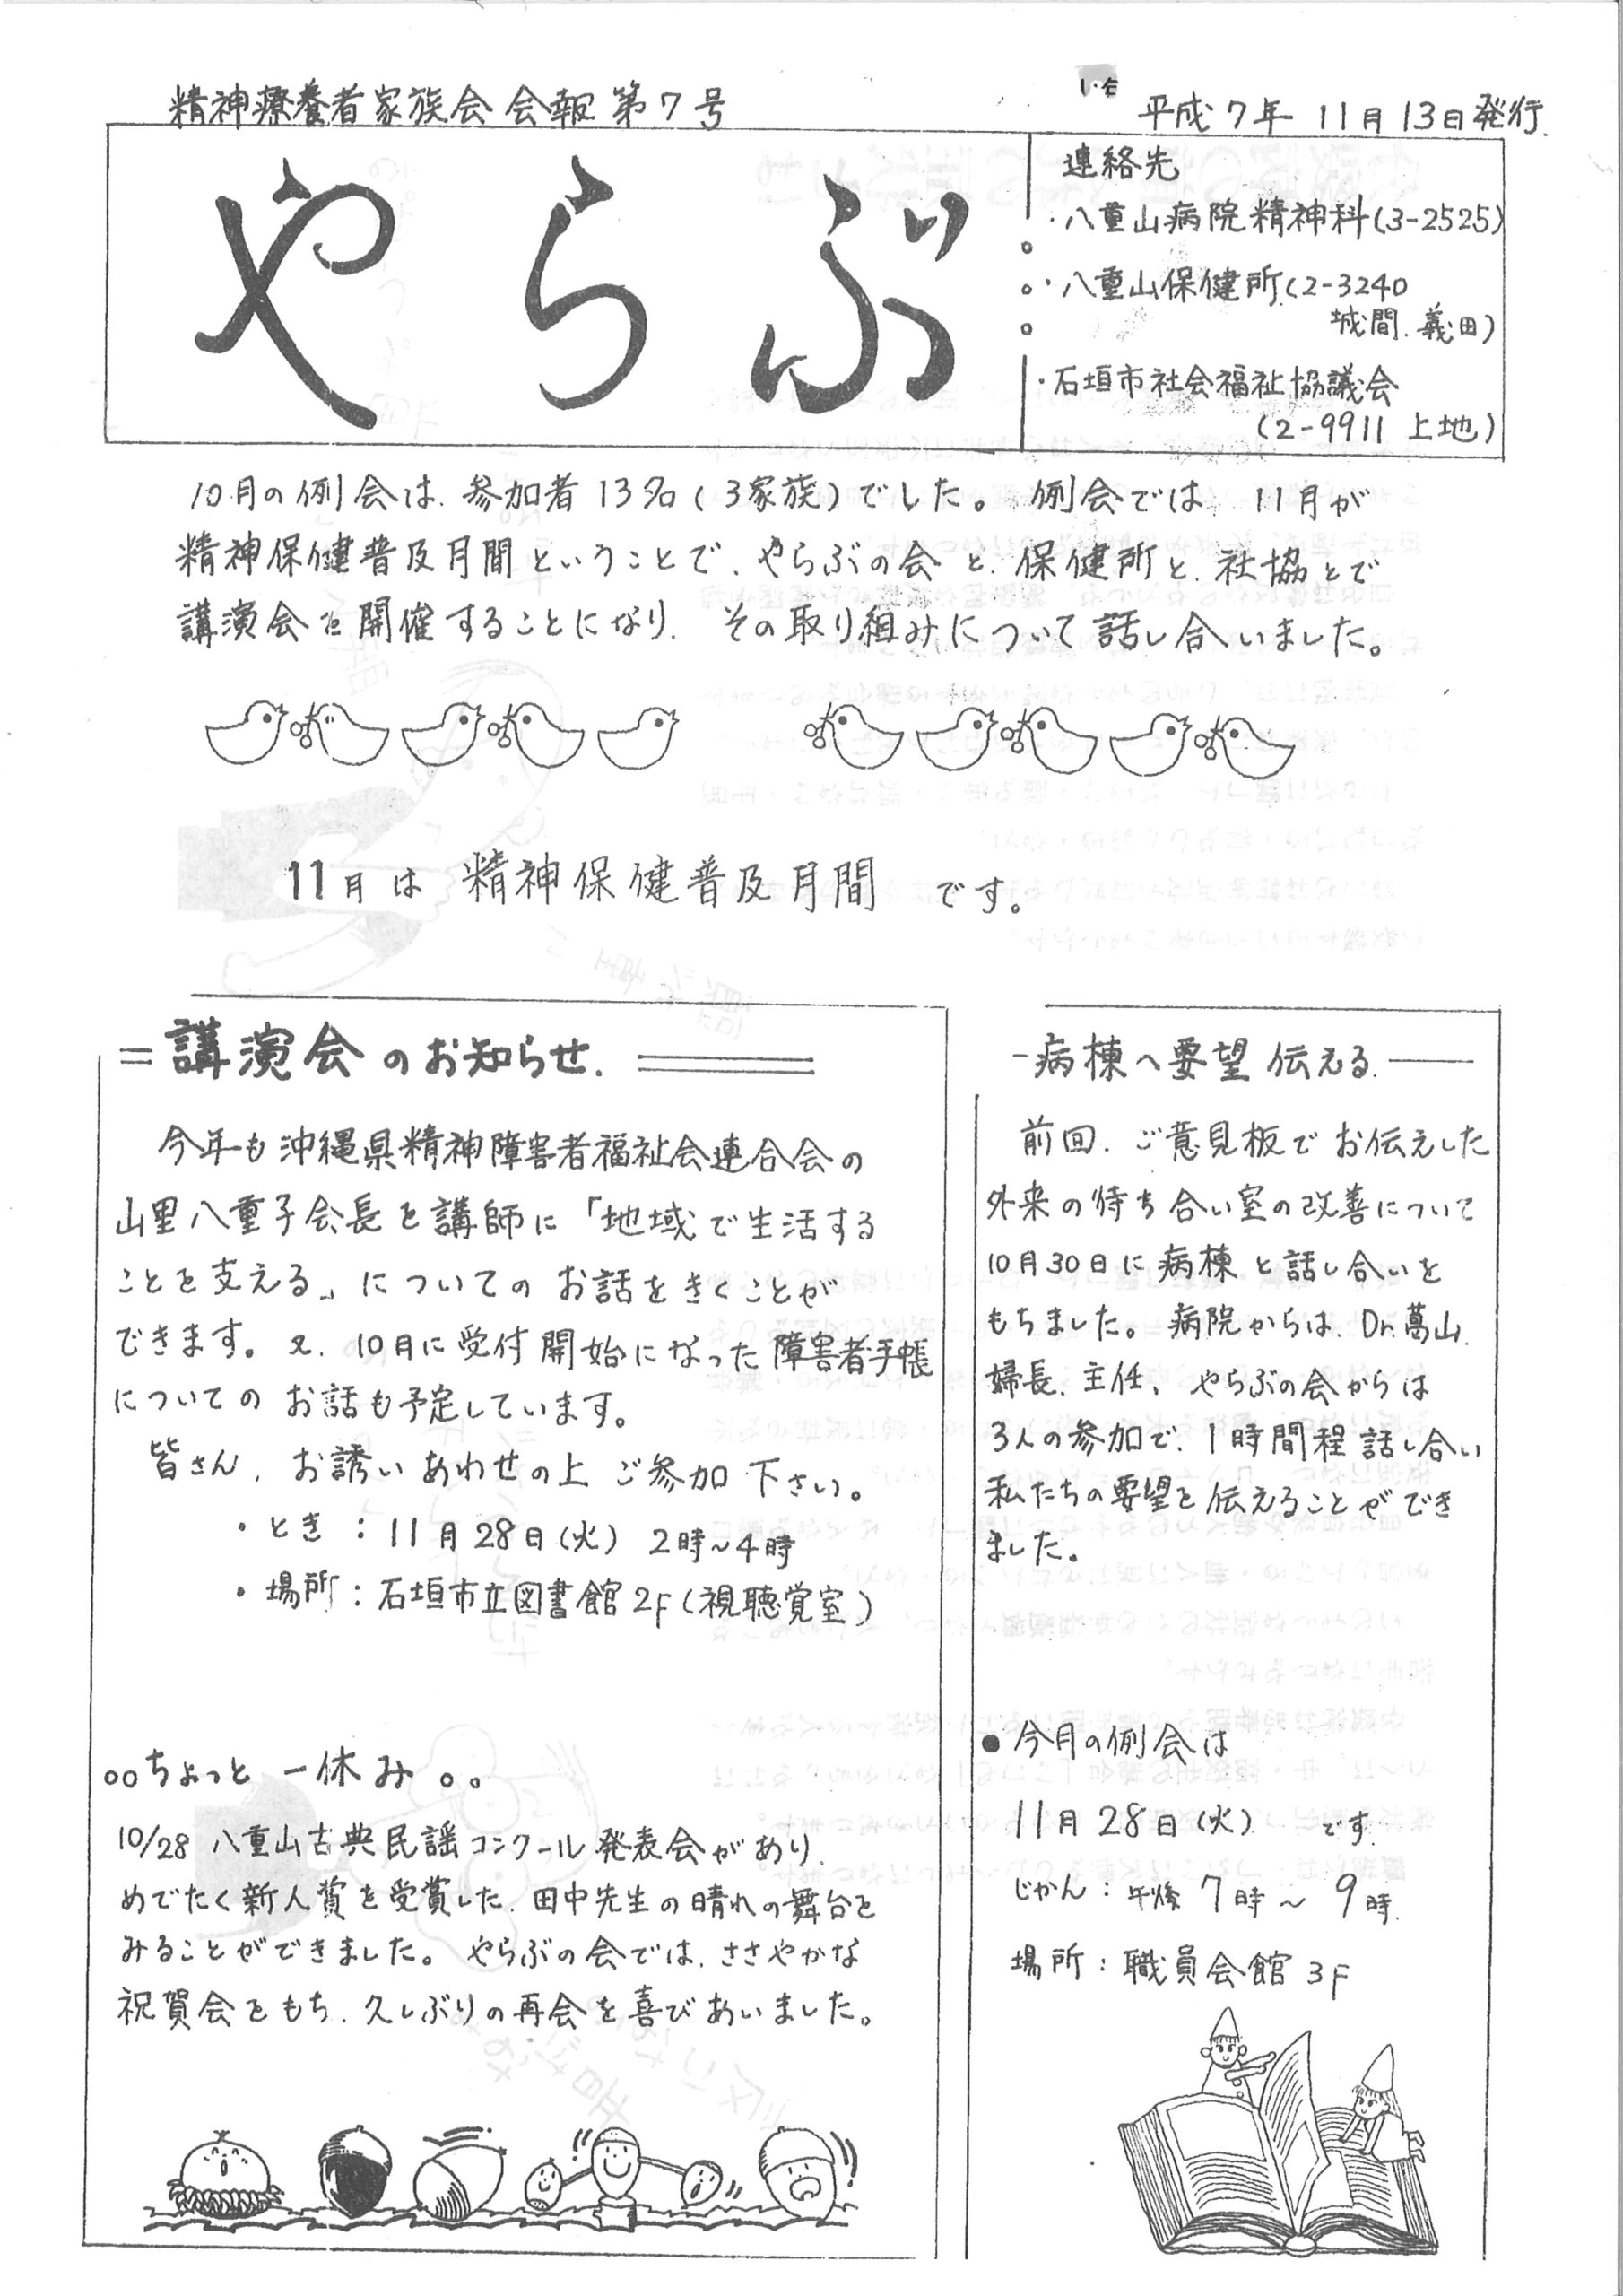 精神療養者家族会会報第7号
平成7年11月13日発行.
やらぶ
連絡先
・八重山病院精神科(3-2525)
・八重山保健所(2-3240
城間.義田)
・石垣市社会福祉協議会
(2-9911 上地)
10月の例会は、参加者13名(3家族)でした。例会では 11月が
精神保健普及月間ということで、やらぶの会と、保健所と、社協とで
講演会を開催することになり、その取り組みについて話し合いました。
11月は 精神保健普及月間 です。
=講演会のお知らせ.
今年も沖縄県精神障害者福祉会連合会の
山里八重子会長を講師に「地域で生活する
ことを支える」についてのお話をきくことが
できます。又、10月に受付開始になった障害者手帳
についてのお話も予定しています。
皆さん、お誘いあわせの上ご参加下さい。
・とき:11月28日(火) 2時~4時
・場所:石垣市立図書館2F(視聴覚室)
○○ちょっと一休み。。
10/28 八重山古典民謡コンクール発表会があり、
めでたく新人賞を受賞した、田中先生の晴れの舞台を
みることができました。やらぶの会では、ささやかな
祝賀会をもち、久しぶりの再会を喜びあいました。
-病棟へ要望伝える.
前回、ご意見板でお伝えした
外来の待ち合い室の改善について
10月30日に病棟と話し合いを
もちました。病院からは、Dr.葛山、
婦長、主任、やらぶの会からは
3人の参加で、1時間程話し合い
私たちの要望を伝えることができ
ました。
●今月の例会は
11月28日(火) です.
じかん:午後7時~9時.
場所:職員会館3F